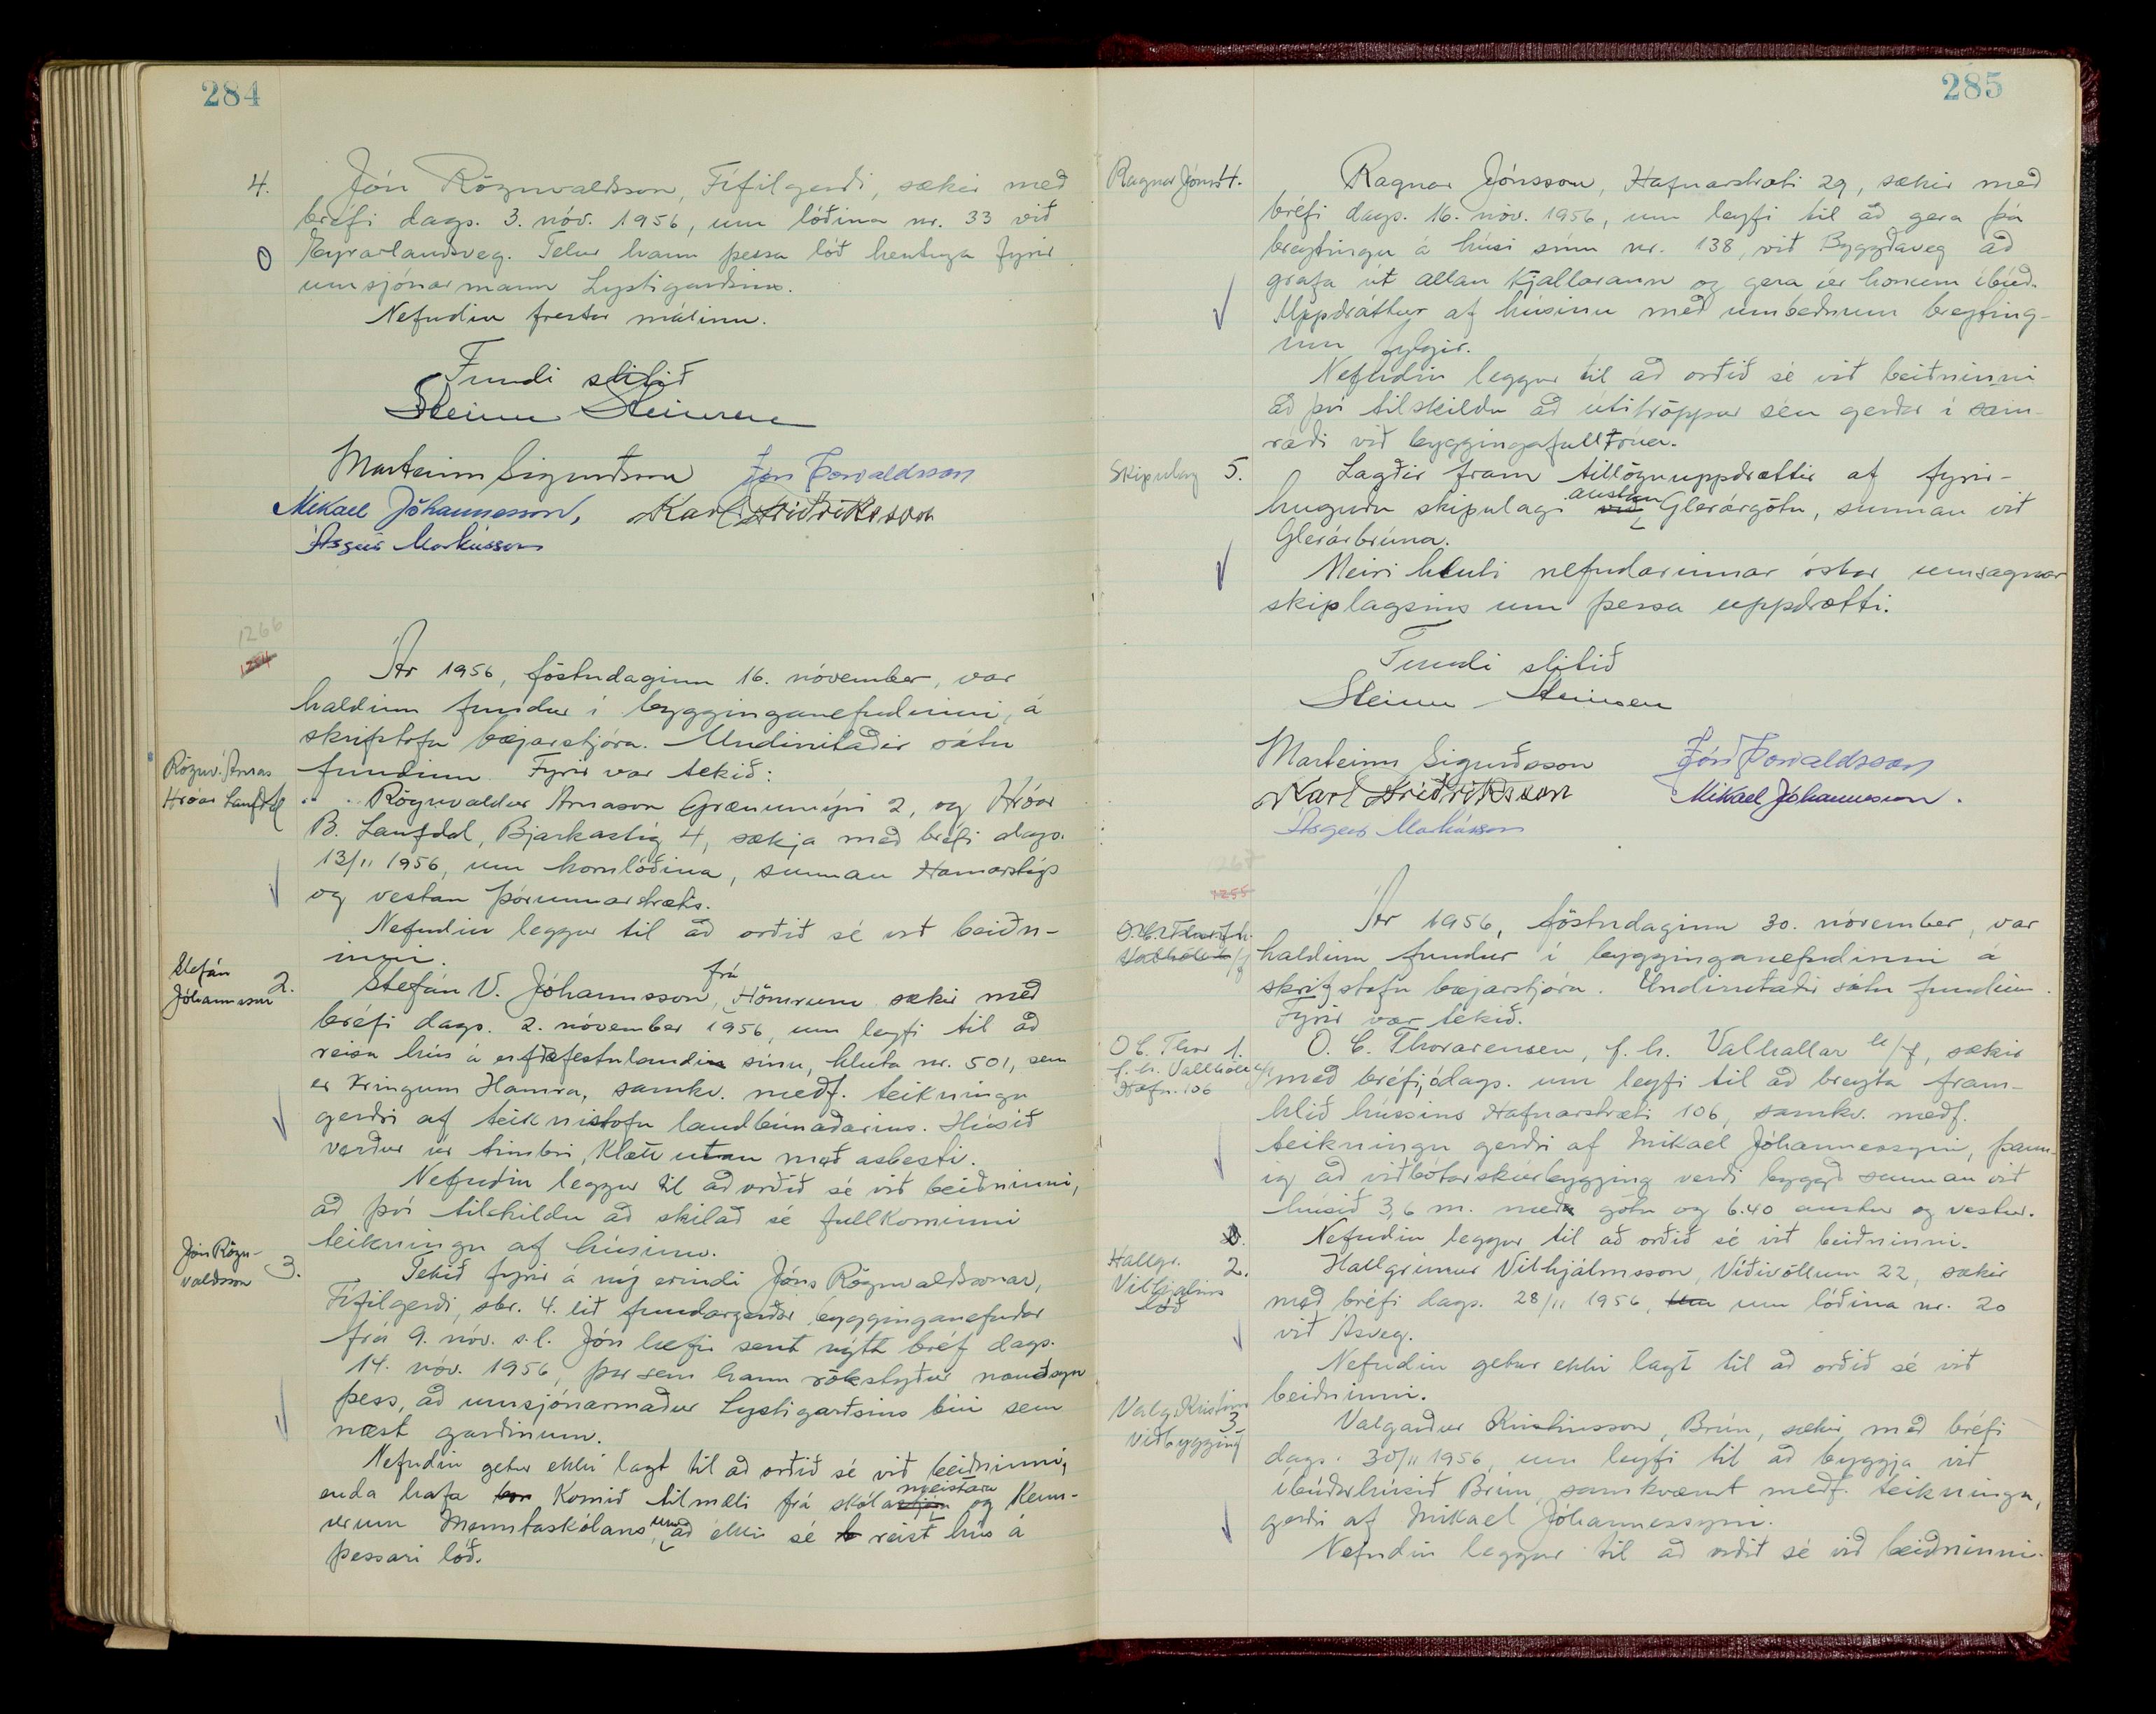 284
4. Jón Rögnvaldsson, Fífilgerði, sækir með
bréfi dags. 3. nóv. 1956, um lóðina nr. 33 við
O Eyrarlandsveg. Telur hann þessa lóð hentuga fyrir
umsjónarmann Lystigarðsins.
Nefndin frestar málinu.
Fundi slitið
Steinn Steinsen
Marteinn Sigurðsson Jón Þorvaldsson
Mikael Jóhannesson, Karl Friðriksson
Ásgeir Markússon
1266
1254
Ár 1956, föstudaginn 16. nóvember, var
haldinn fundur í bygginganefndinni, á
skrifstofu bæjarstjóra. Undirritaðir sátu
fundinn. Fyrir var tekið:
Rögnv. Árnas
Hróar Laufdal
Rögnvaldur Árnason Grænumýri 2, og Hróar
B. Laufdal, Bjarkastíg 4, sækja með bréfi dags.
13/11 1956, um hornlóðina, sunnan Hamarstígs
og vestan Þórunnarstrætis.
Nefndin leggur til að orðið sé við beiðn-
inni.
Stefán
Jóhannsson
2. Stefán V. Jóhannsson, frá Hömrum sækir með
bréfi dags. 2. nóvember 1956, um leyfi til að
reisa hús á erfðafestulandin sínu, hluta nr. 501, sem
er kringum Hamra, samkv. meðf. teikningu
gerðri af teiknistofu landbúnaðarins. Húsið
verður úr timbri, klætt utan með asbesti.
Nefndin leggur til að orðið sé við beiðninni,
að því tilskildu að skilað sé fullkominni
teikningu af húsinu.
Jón Rögn-
valdsson
3. Tekið fyrir á ný erindi Jóns Rögnvaldssonar,
Fífilgerði, sbr. 4. lið fundargerðar bygginganefndar
frá 9. nóv. s.l. Jón hefir sent nýtt bréf dags.
14. nóv. 1956, þar sem hann rökstyður nauðsyn
þess, að umsjónarmaður Lystigarðsins búi sem
næst garðinum.
Nefndin getur ekki lagt til að orðið sé við beiðninni,
enda hafa kom komið tilmæli frá skólastjóra meistara og kenn-
urum Menntaskólans, um að ekki sé b reist hús á
þessari lóð.
285
Ragnar Jónss
4. Ragnar Jónsson, Hafnarstræti 29, sækir með
bréfi dags. 16. nóv. 1956, um leyfi til að gera þá
breytingu á húsi sínu nr. 138, við Byggðaveg að
grafa út allan kjallarann og gera úr honum íbúð.
Uppdráttur af húsinu með umbeðnum breyting-
um fylgir.
Nefndin leggur til að orðið sé við beiðninni
að því tilskildu að útitröppur séu gerðar í sam-
ráði við byggingafulltrúa.
Skipulag
5. Lagðir fram tillöguuppdrættir af fyrir-
huguðu skipulagi við austan Glerárgötu, sunnan við
Glerárbrúna.
Meiri hluti nefndarinnar óskar umsagnar
skiplagsins um þessa uppdrætti.
Fundi slitið
Steinn Steinsen
Marteinn Sigurðsson Jón Þorvaldsson
Karl Friðriksson Mikael Jóhannesson.
Ásgeir Markússon
1267
1255
Ár 1956, föstudaginn 30. nóvember, var
haldinn fundur í bygginganefndinni á
skrifstofu bæjarstjóra. Undirritaðir sátu fundinn.
Fyrir var tekið.
O C. Thor
f. h. Valhöll h/f
Hafn. 106
1. O. C. Thorarensen, f. h. Valhallar h/f, sækir
með bréfi, ódags. um leyfi til að breyta fram-
hlið hússins Hafnarstræti 106, samkv. meðf.
teikningu gerðri af Mikael Jóhannessyni, þann-
ig að viðbótarskúrbygging verði byggð sunnan við
húsið 3,6 m. með götu og 6.40 austur og vestur.
Nefndin leggur til að orðið sé við beiðninni.
Hallgr.
Vilhjálms
lóð
2. Hallgrímur Vilhjálmsson, Víðivöllum 22, sækir
með bréfi dags. 28/11 1956, um um lóðina nr. 20
við Ásveg.
Nefndin getur ekki lagt til að orðið sé við
beiðninni.
Valg. Kristins
Viðbygging
3. Valgarður Kristinsson, Brún, sækir með bréfi
dags. 30/11 1956, um leyfi til að byggja við
íbúðarhúsið Brún, samkvæmt meðf. teikningu,
gerðri af Mikael Jóhannessyni.
Nefndin leggur til að orðið sé við beiðninni.